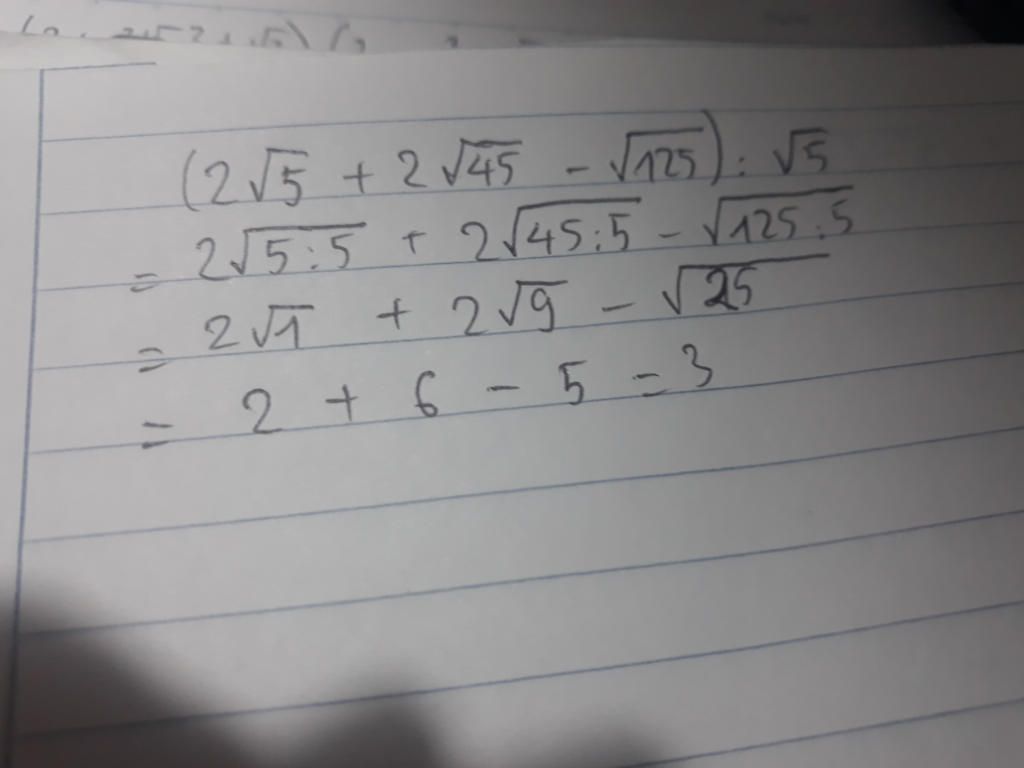 (2√5 + 2√45 - √125) : √5
= 2√5:5 + 2√45:5 - √125:5
= 2√1 + 2√9 - √25
= 2 + 6 - 5 = 3